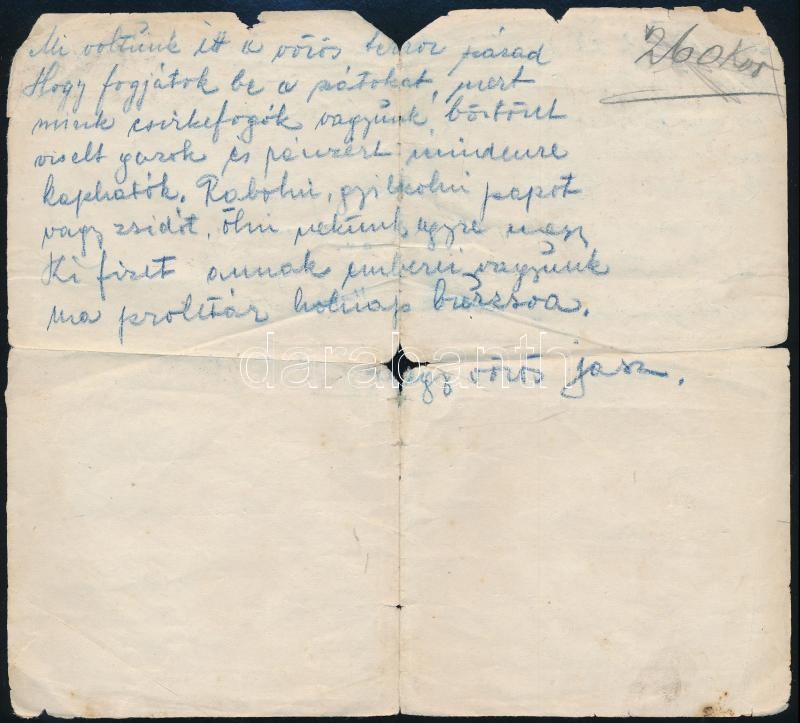 Mi voltunk itt a vörös terror
Hogy fogjátok be a pátokat, mert
munk csirkefogók vagyunk börtönt
viselt gazok és pénzért mindenre
kaphatók. Rabolni, gyilkolni papot
vagy zsidót, ölni nekünk egyre megy
Ki fizet annak emberei vagyunk
ma proletár holnap burzsoa.
egy vörös jasz.
260 Kor
darabanth